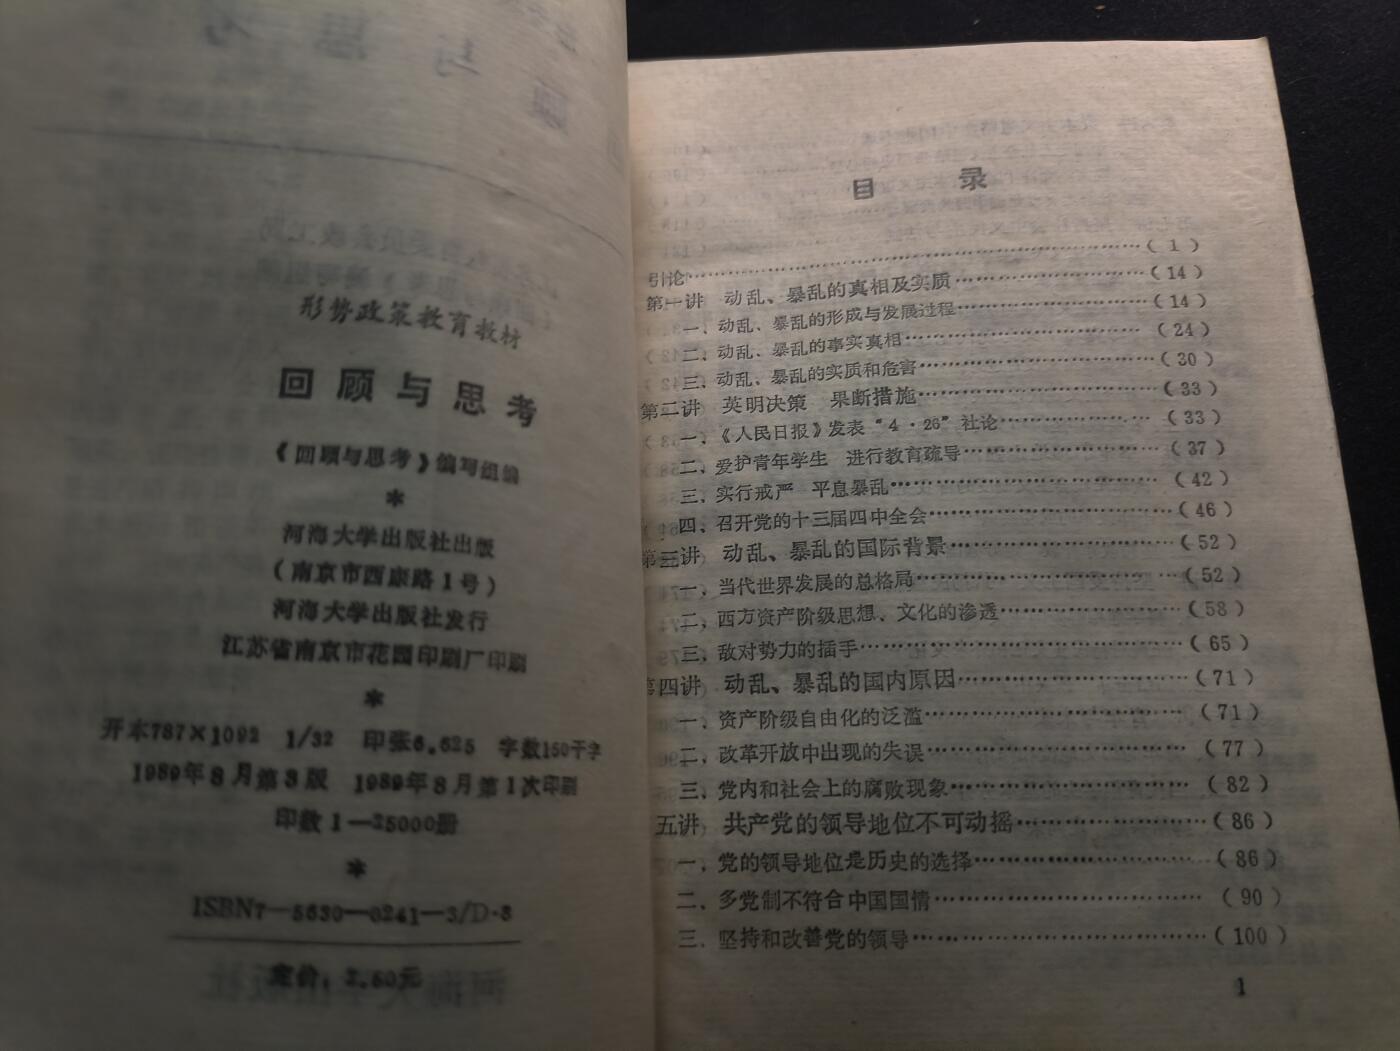 形势政策教育教材
回顾与思考
《回顾与思考》编写组编
*
河海大学出版社出版
(南京市西康路1号)
河海大学出版社发行
江苏省南京市花园印刷厂印刷
*
开本787×1092 1/32 印张6.625 字数150千字
1989年8月第3版 1989年8月第1次印刷
印数1—35000册
*
ISBN7—5630—0241—3/D·8
定价：2.60元
目录
引论……(1)
第一讲 动乱、暴乱的真相及实质……(14)
一、动乱、暴乱的形成与发展过程……(14)
二、动乱、暴乱的事实真相……(24)
三、动乱、暴乱的实质和危害……(30)
第二讲 英明决策 果断措施……(33)
一、《人民日报》发表“4·26”社论……(33)
二、爱护青年学生 进行教育疏导……(37)
三、实行戒严 平息暴乱……(42)
四、召开党的十三届四中全会……(46)
第三讲 动乱、暴乱的国际背景……(52)
一、当代世界发展的总格局……(52)
二、西方资产阶级思想、文化的渗透……(58)
三、敌对势力的插手……(65)
第四讲 动乱、暴乱的国内原因……(71)
一、资产阶级自由化的泛滥……(71)
二、改革开放中出现的失误……(77)
三、党内和社会上的腐败现象……(82)
五讲 共产党的领导地位不可动摇……(86)
一、党的领导地位是历史的选择……(86)
二、多党制不符合中国国情……(90)
三、坚持和改善党的领导……(100)
1